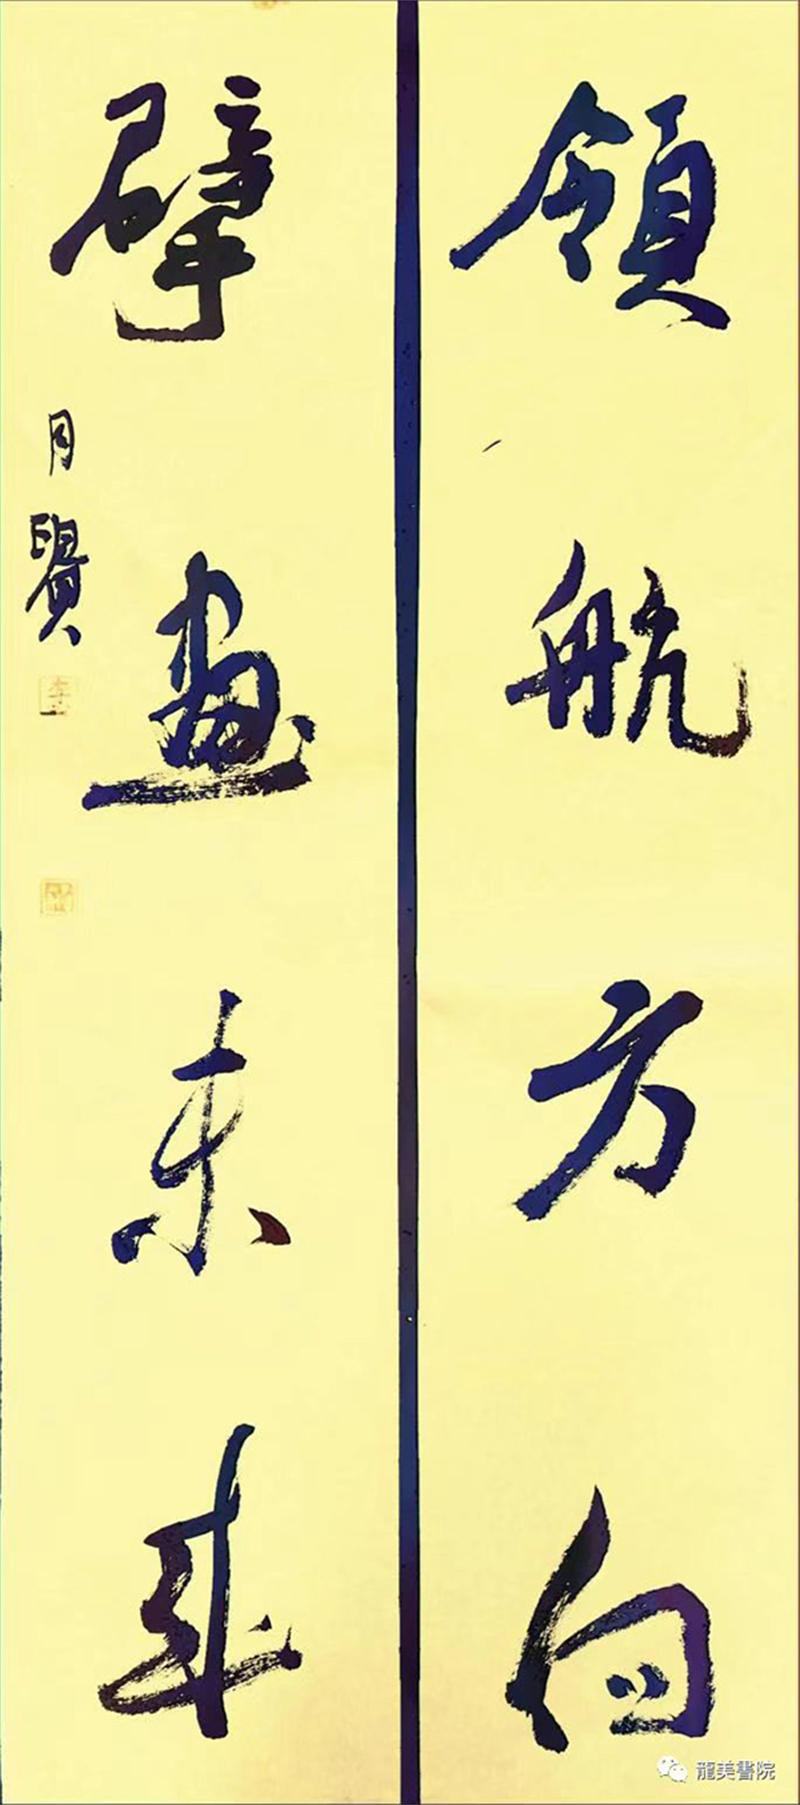 領航方向
擘畫未來
月賢
龍美書院